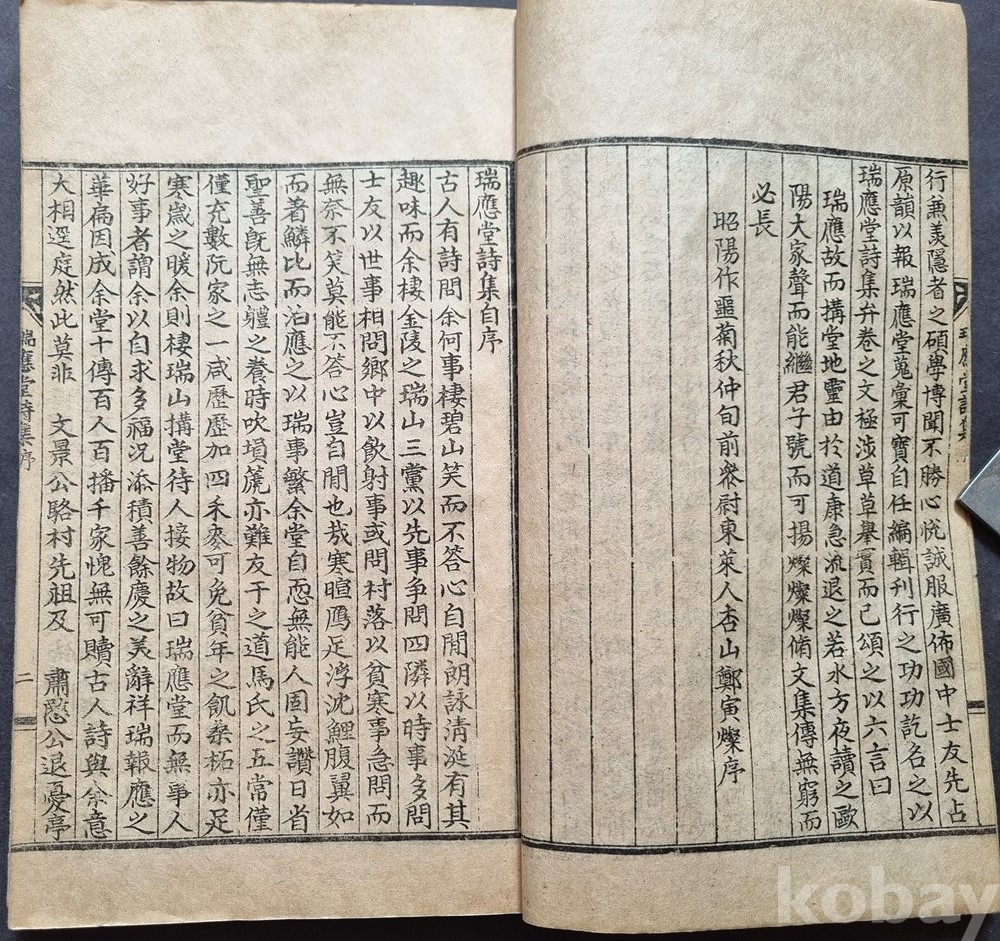 行兼羨隱者之碩學博聞不勝心悅誠服廣佈國中士友先占
原韻以報瑞應堂蒐彙可寶自任編輯刊行之功功訖名之以
瑞應堂詩集弁卷之文極涉草草擧實而已頌之以六言曰
瑞應故而搆堂地靈由於道康急流退之若水方夜讀之歐
陽大家聲而能繼君子號而可揚燦燦燦脩文集傳無窮而
必長
昭陽作噩菊秋仲旬前參尉東萊人杏山鄭寅燦序
瑞應堂詩集自序
古人有詩問余何事棲碧山笑而不答心自閒朗詠淸涎有其
趣味而余棲金陵之瑞山三黨以先事爭問四隣以時事多問
士友以世事相問鄉中以飮射事或問村落以貧寒事急問而
無奈不笑莫能不答心豈自閒也哉寒暄鴈足浮沈鯉腹翼如
而著鱗比而泊應之以瑞事繁余堂自恧無能人固妄讚日省
聖善旣無志軆之養時吹塤箎亦難友于之道馬氏之五常僅
僅充數阮家之一咸歷歷加四禾麥可免貧年之飢桑柘亦足
寒歲之暖余則棲瑞山搆堂待人接物故曰瑞應堂而無事人
好事者謂余以自求多福况添積善餘慶之美辭祥瑞報應之
華扁因成余堂十傳百人百播千家愧無可贖古人詩與余意
大相逕庭然此莫非 文景公駱村先祖及 肅愍公退憂亭
瑞應堂詩集序
二
kobay